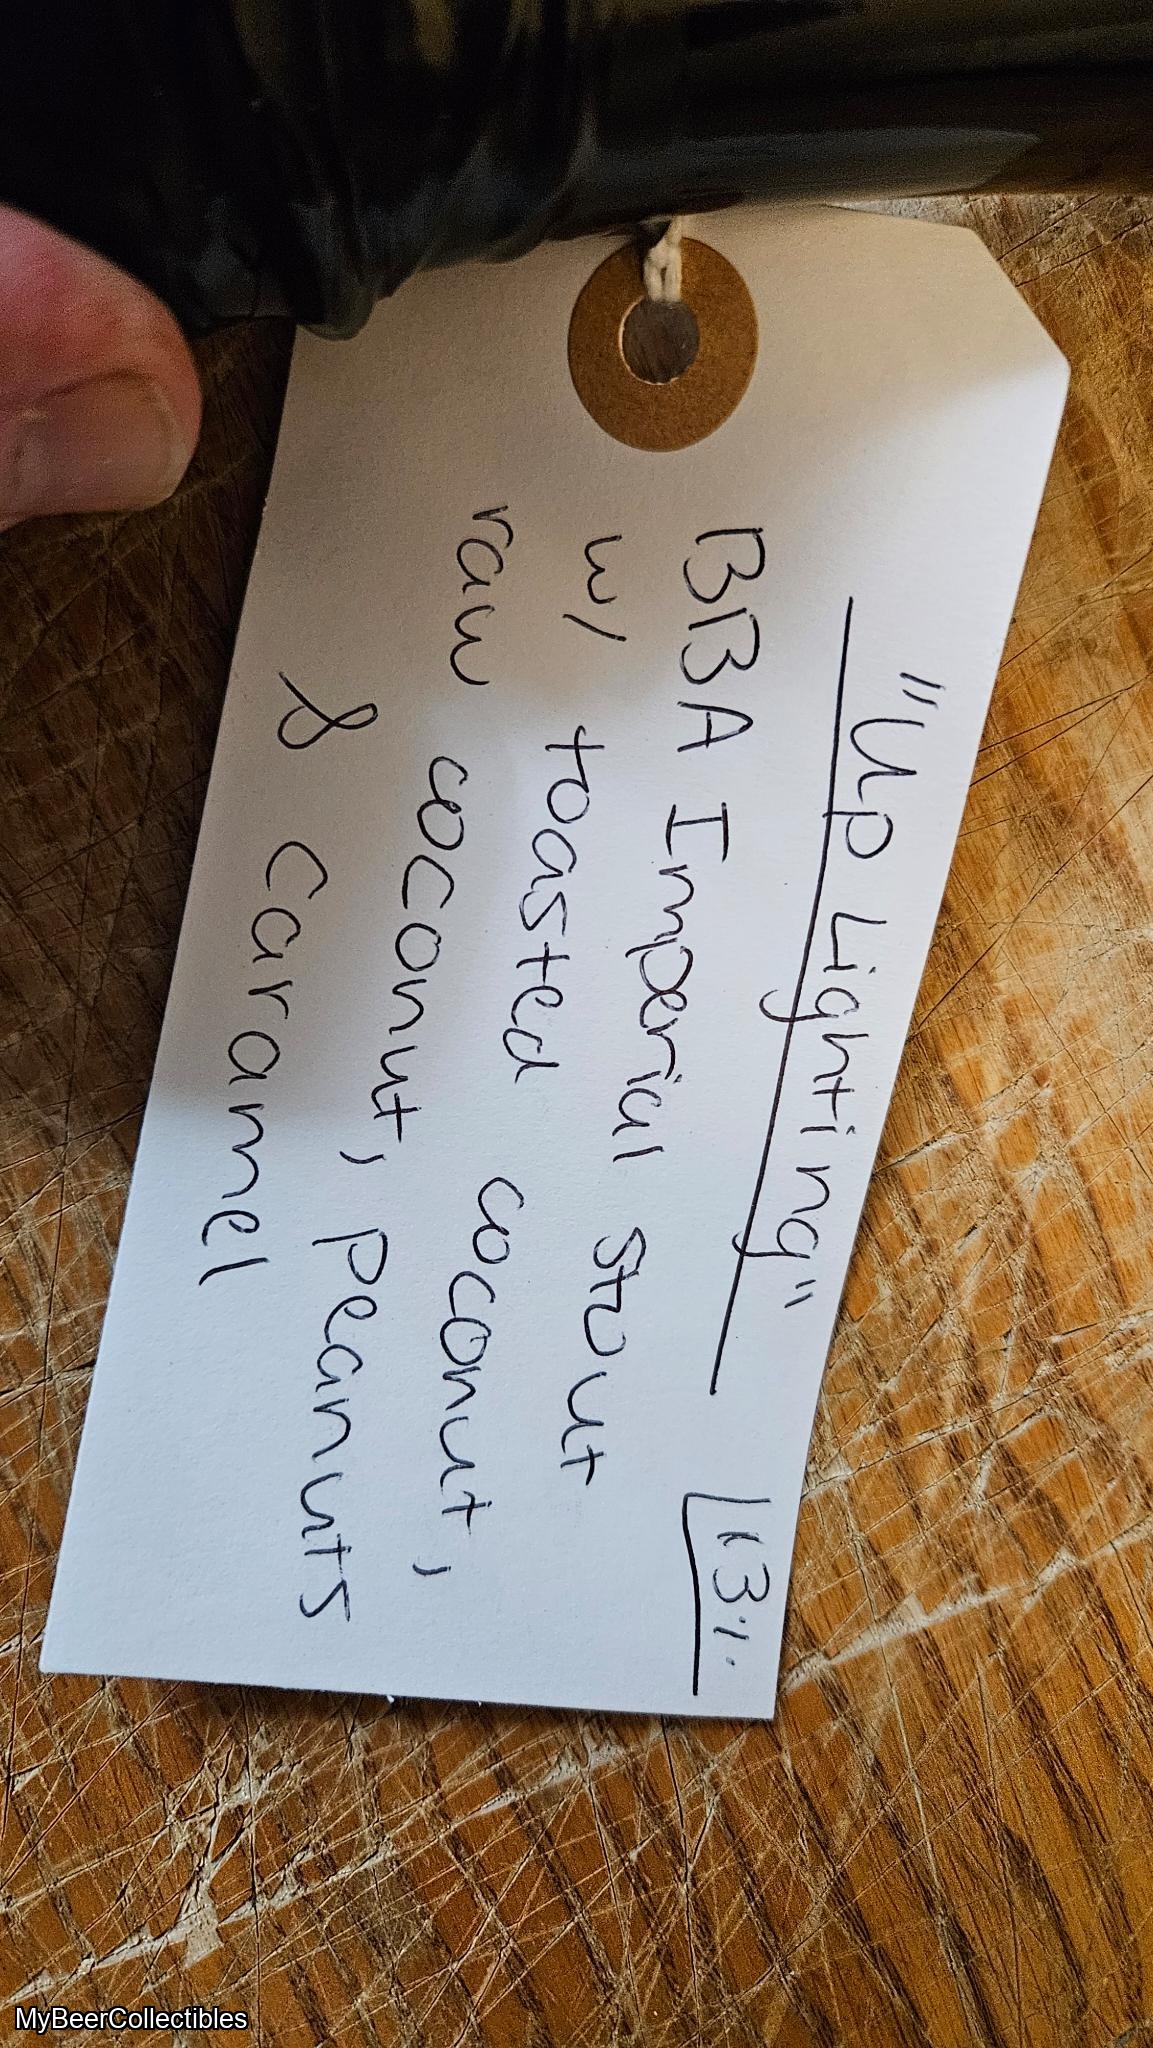 "Up Lighting"
13%
BBA Imperial Stout
w/ toasted coconut,
raw coconut, peanuts
& caramel
MyBeerCollectibles